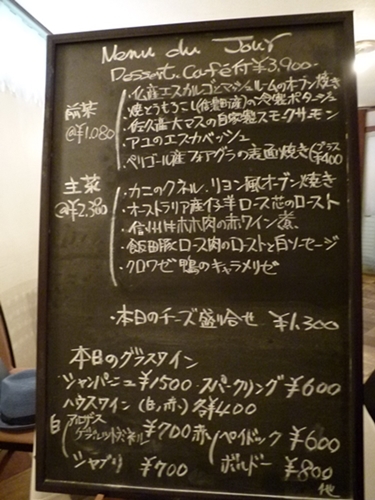 Menu du Jour
Dessert. Café付 ¥3,900-
前菜
@¥1.080
・仏産エスカルゴとマッシュルームのオーブン焼き
・焼とうもろこし(信州産)の冷製ポタージュ
・佐久高大マスの自家製スモークサモン
・アユのエスカベッシュ
・ペリゴール産フォアグラの 焼き(プラス¥400
主菜
@¥2.300
・カニのクネル.リヨン風オーブン焼き
・オーストラリア産仔羊ロース芯のロースト
・信州牛ホホ肉の赤ワイン煮
・飯田豚ロース肉のローストと白ソーセージ
・クロワゼ鴨のキャラメリゼ
・本日のチーズ盛り合せ ¥1.300
本日のグラスワイン
シャンパーニュ ¥1500 スパークリング ¥600
ハウスワイン (白,赤) 各¥400
白 アルザス ゲヴュルツトラミネール ¥700 赤 ペイドック ¥600
シャブリ ¥700 ボルドー ¥800
他